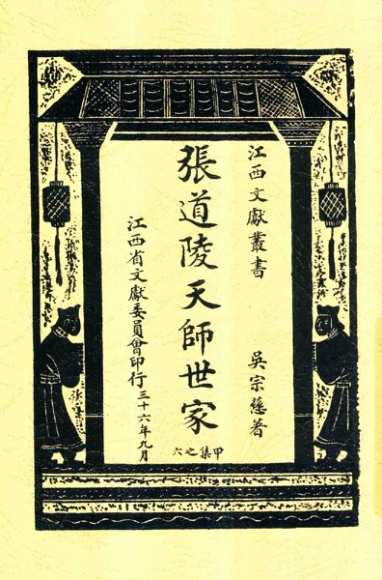 江西文獻叢書
吳宗慈著
張道陵天師世家
甲集之六
江西省文獻委員會印行三十六年九月